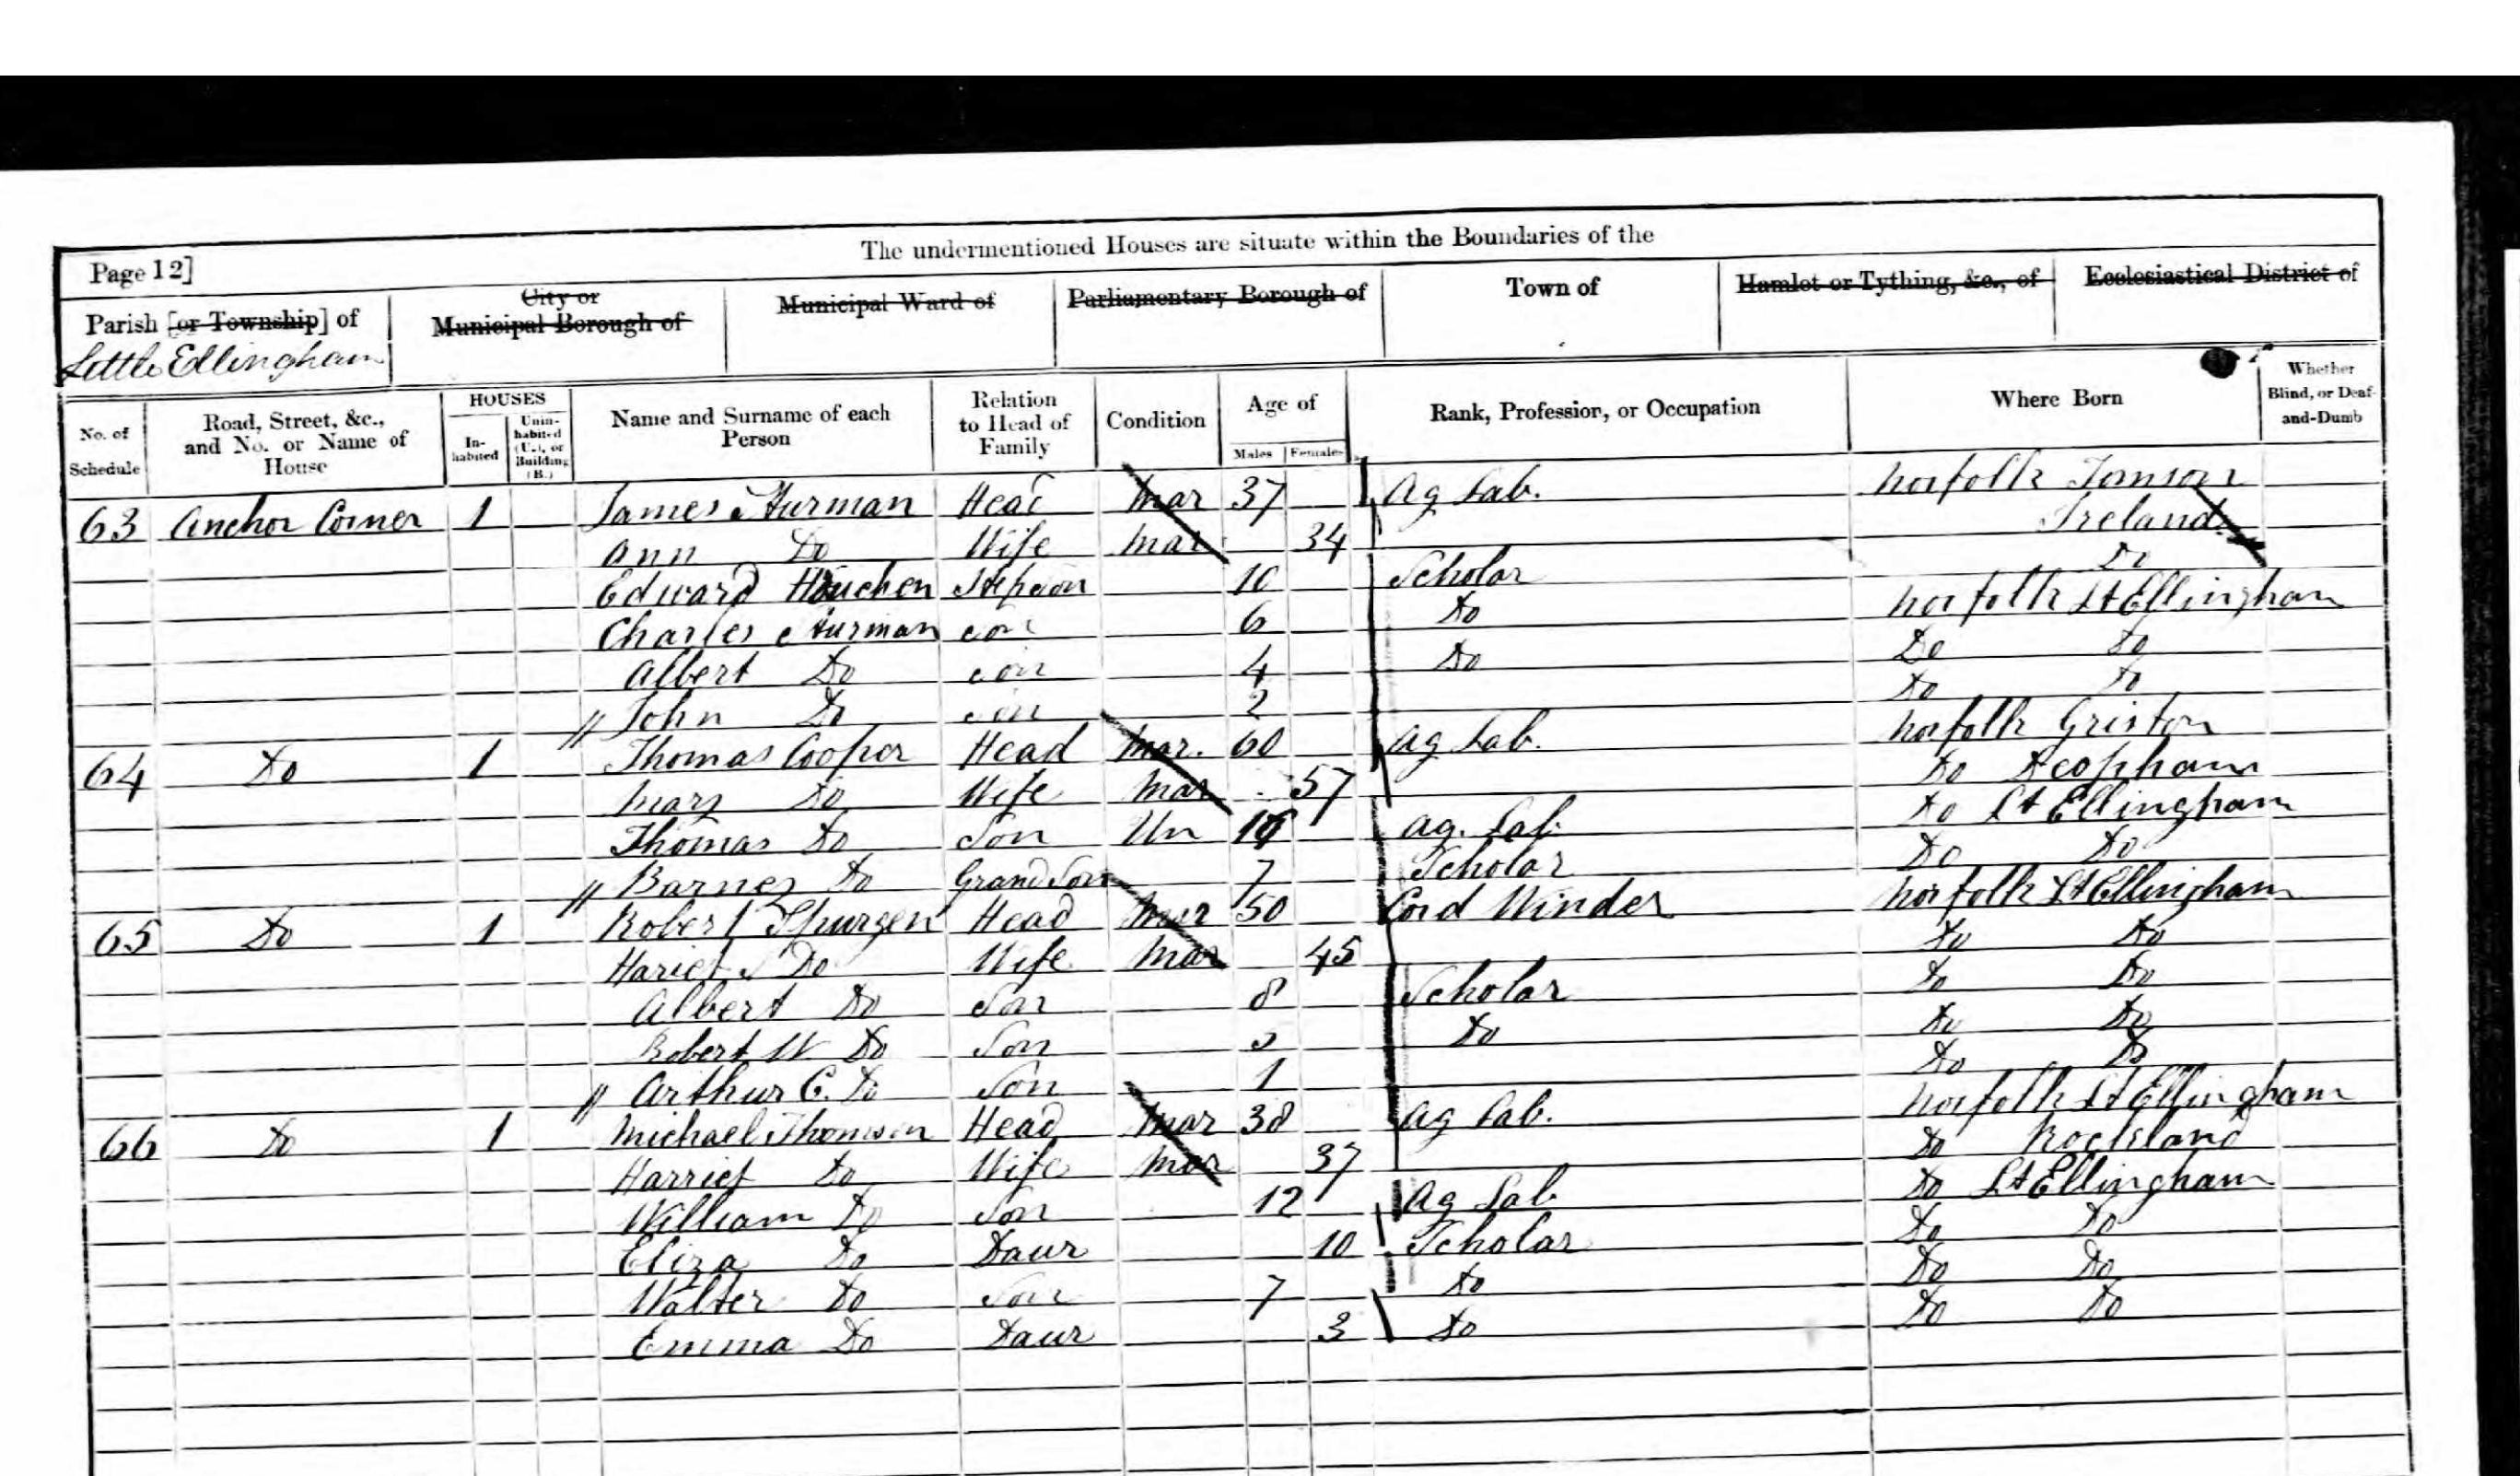 The undermentioned Houses are situate within the Boundaries of the
Page 12]
Parish [or Township] of
Little Ellingham
City or
Municipal Borough of
Municipal Ward of
Parliamentary Borough of
Town of
Hamlet or Tything, &c., of
Ecclesiastical District of
No. of
Schedule
Road, Street, &c.,
and No. or Name of
House
HOUSES
In-
habited
Unin-
habited
(U.), or
Building
(B.)
Name and Surname of each
Person
Relation
to Head of
Family
Condition
Age of
Males Females
Rank, Profession, or Occupation
Where Born
Whether
Blind, or Deaf-
and-Dumb
63 Anchor Corner 1 James Sturman Head Mar 37 Ag Lab. Norfolk Tomson
Ann Do Wife Mar 34 Ireland
Edward Houchen Stepson 10 Scholar Do
Charles Sturman Son 6 Do Norfolk Lt Ellingham
Albert Do Son 4 Do Do Do
// John Do Son 2 Do Do
64 Do 1 Thomas Cooper Head Mar. 60 Ag Lab. Norfolk Griston
Mary Do Wife Mar 57 Do Deopham
Thomas Do Son Un Ag. Lab. Do Lt Ellingham
// Barnes Do Grand Son 7 Scholar Do Do
65 Do 1 Robert Spurgen Head Mar 50 Cord Winder Norfolk Lt Ellingham
Hariet S Do Wife Mar 45 Do Do
Albert Do Son 8 Scholar Do Do
Robert W Do Son Do Do Do
// Arthur C. Do Son 1 Do Do
66 Do 1 Michael Thomson Head Mar 38 Ag Lab. Norfolk Lt Ellingham
Harriet Do Wife Mar 37 Do Rockland
William Do Son 12 Ag Lab Do Lt Ellingham
Eliza Do Daur 10 Scholar Do Do
Walter Do Son 7 Do Do Do
Emma Do Daur 3 Do Do Do